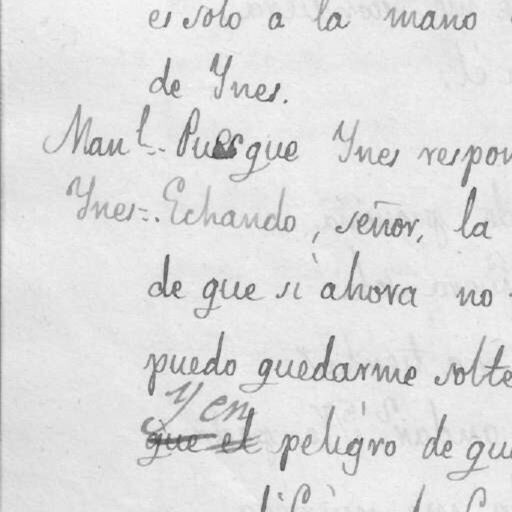 es solo a la mano
de Ynes.
Man^l.- Pues que Ynes respon
Ynes=. Echando, señor, la
de que si ahora no
puedo quedarme solte
y en
que el peligro de qu